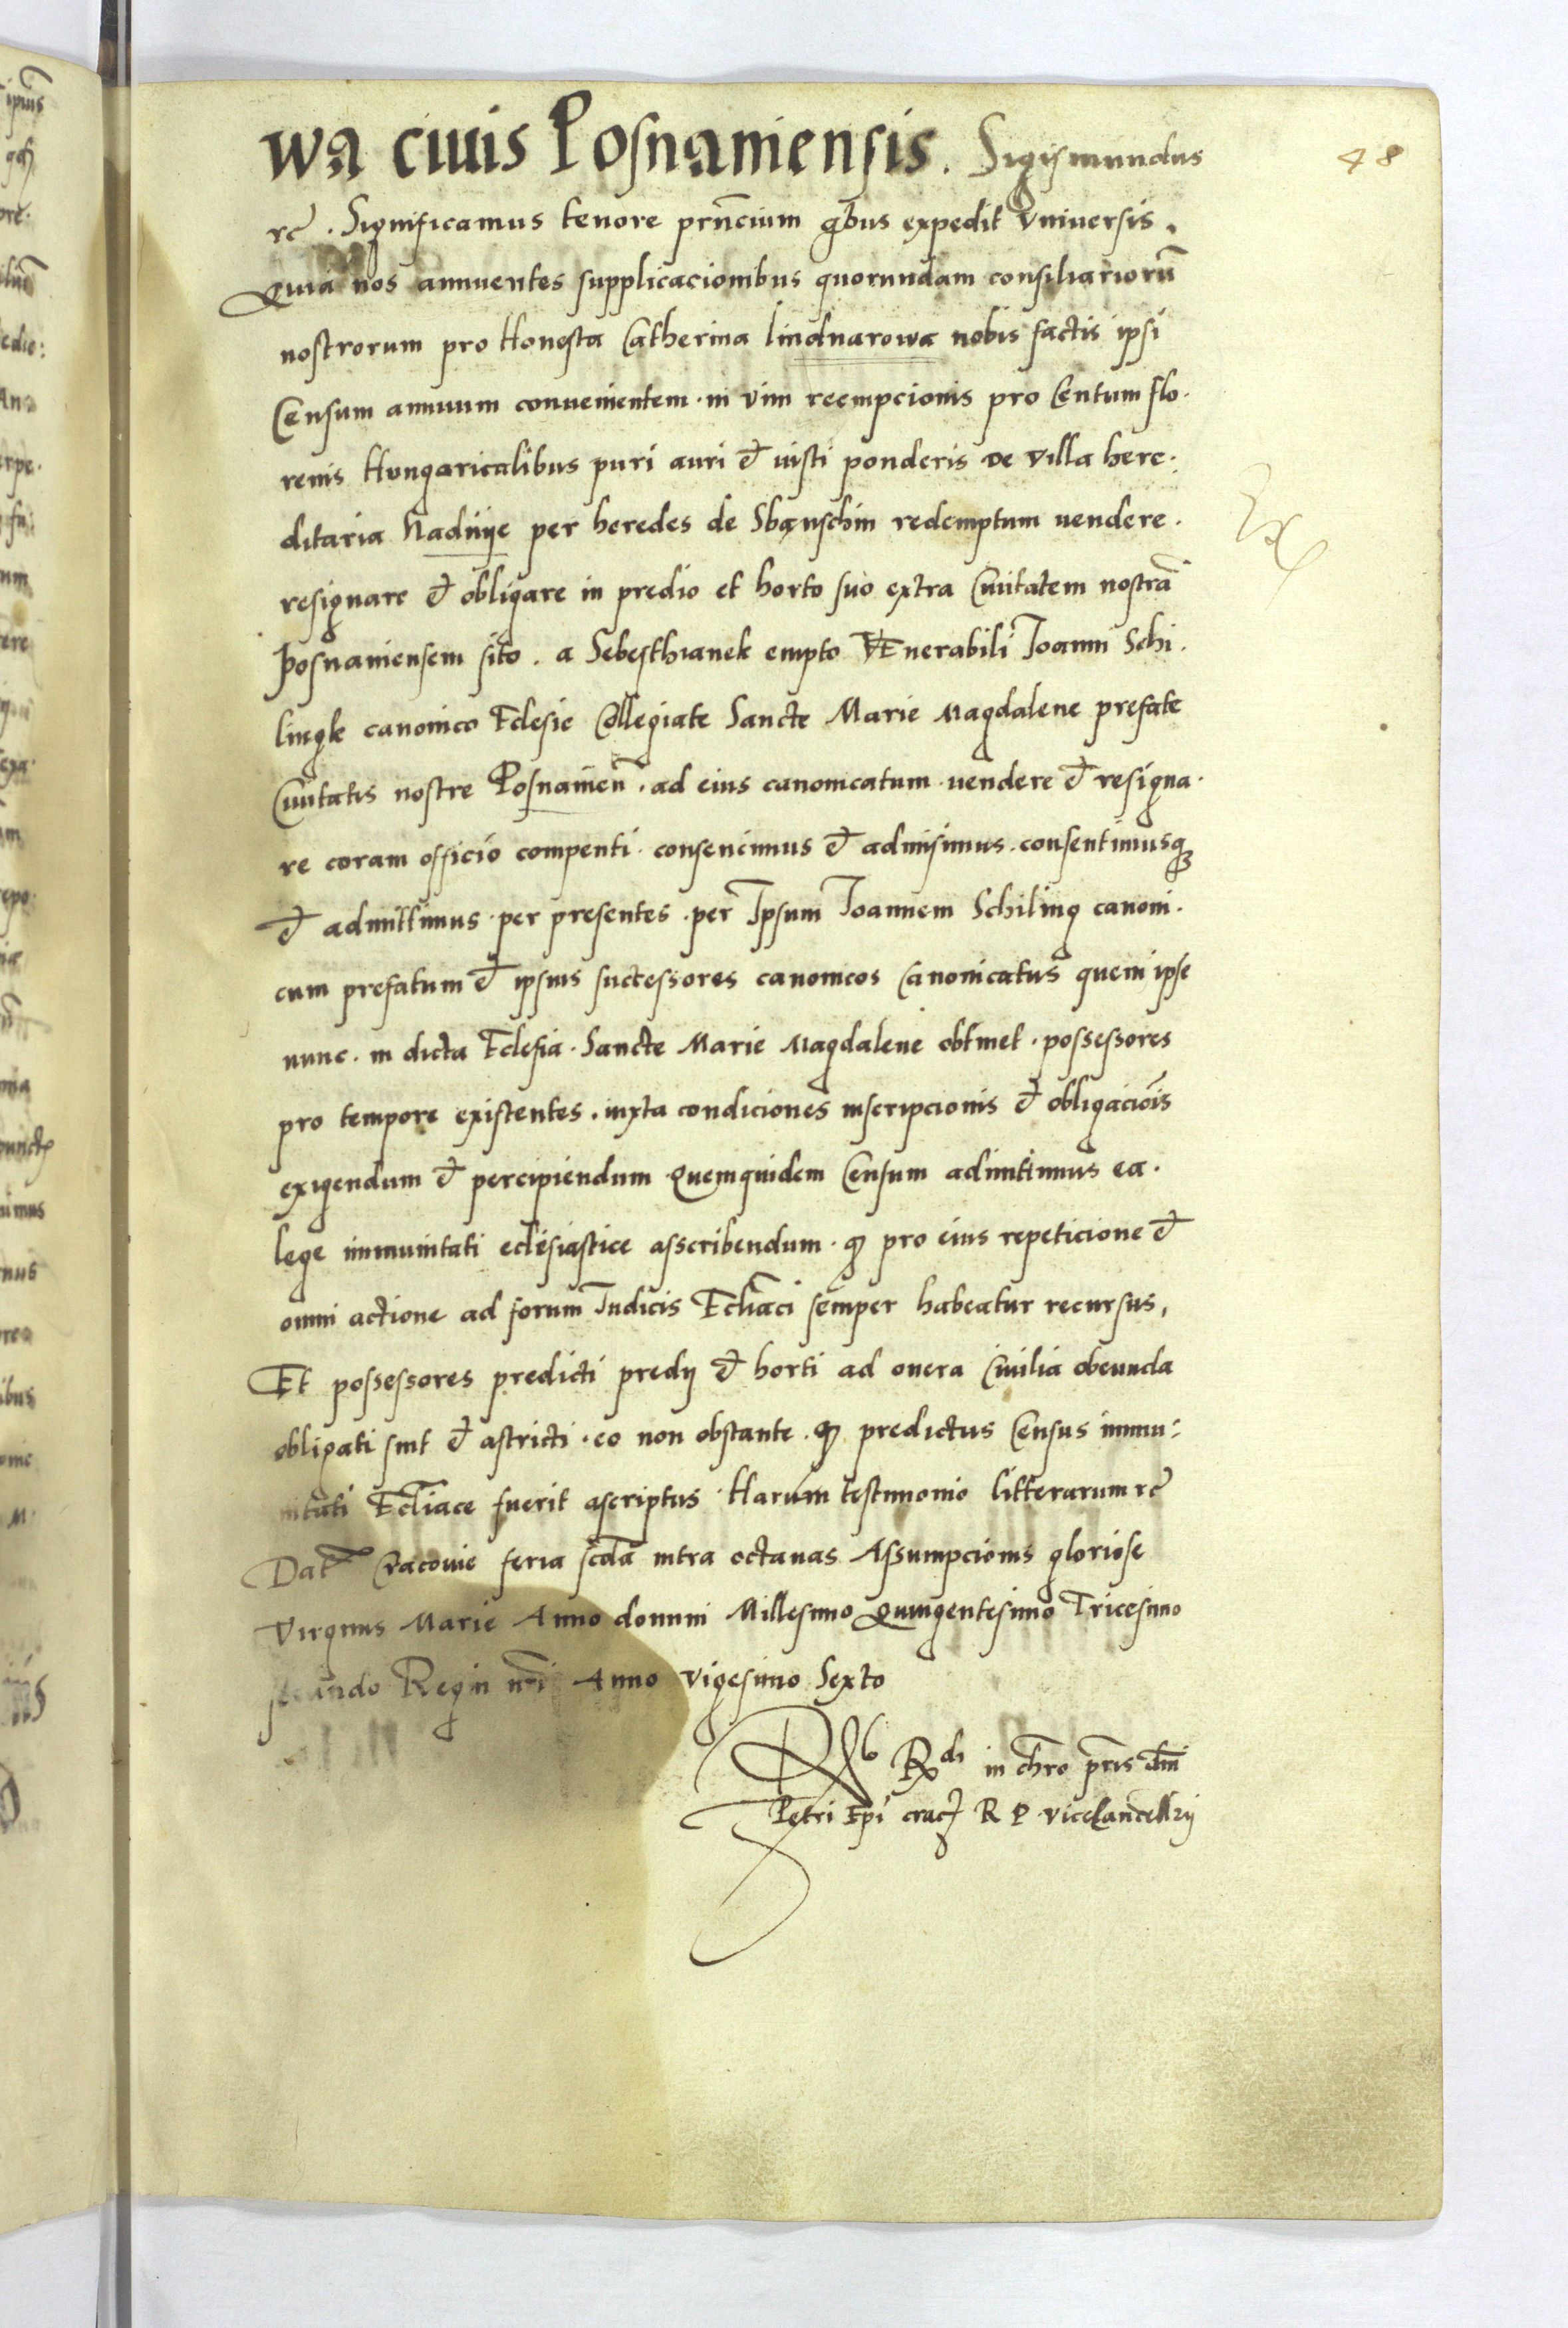 wa ciuis Posnaniensis. Sigismundus
48
rc̄. Significamus tenore prn̄cium qb̄us expedit Vniuersis.
Quia nos annuentes supplicacionibus quorundam consiliariorū
nostrorum pro Honesta Catherina lindnarowa nobis factis ipsi
Censum annuum conuenientem. in vim reempcionis pro Centum flo.
renis Hungaricalibus puri auri et iusti ponderis de Villa here.
ditaria Nadnye per heredes de Sbąnschin redemptum uendere.
resignare et obligare in predio et horto suo extra Ciuitatem nostrā
Posnaniensem sito. a Sebesthianek empto VEnerabili Joanni Schi.
lingk canonico Eclesie Collegiate Sancte Marie Magdalene prefate
Ciuitatis nostre Posnanien̄. ad eius canonicatum. uendere et resigna.
re coram officio compenti. consencimus et admisimus. consentimusqꝫ
et admittimus. per presentes. per Ipsum Joannem Schiling canoni.
cum prefatum et ipsius successores canonicos Canonicatus quem ipse
nunc. in dicta Eclesia. Sancte Marie Magdalene obtinet. possessores
pro tempore existentes. iuxta condiciones inscripcionis et obligaciōis
exigendum et percipiendum. Quemquidem Censum admittimus ea.
lege immunitati eclesiastice asscribendum. ꝙ pro eius repeticione et
omni actione ad forum Iudicis Ecl̄iaci semper habeatur recursus,
Et possessores predicti predij et horti ad onera Ciuilia obeunda
obligati sint et astricti. eo non obstante. ꝙ predictus Census immu:
nitati Ecl̄iace fuerit ascriptus. Harum testimonio litterarum rc̄
Dat̄ Cracouie feria scd̄a intra octauas Assumpcionis gloriose
Virginis Marie Anno domini Millesimo Quingentesimo Tricesimo
secundo Regni nr̄i Anno vigesimo Sexto
Rdi in chr̄o pr̄is dn̄i
Petri Ep̄i crac R P viceCancellrij